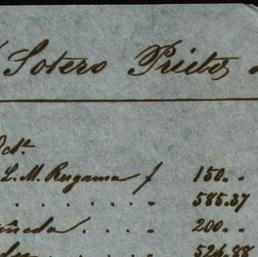 Sotero Prieto
L. M. Rugama 150..
. . . . . . 585.37
. . . . 200..
. . . . 526.88